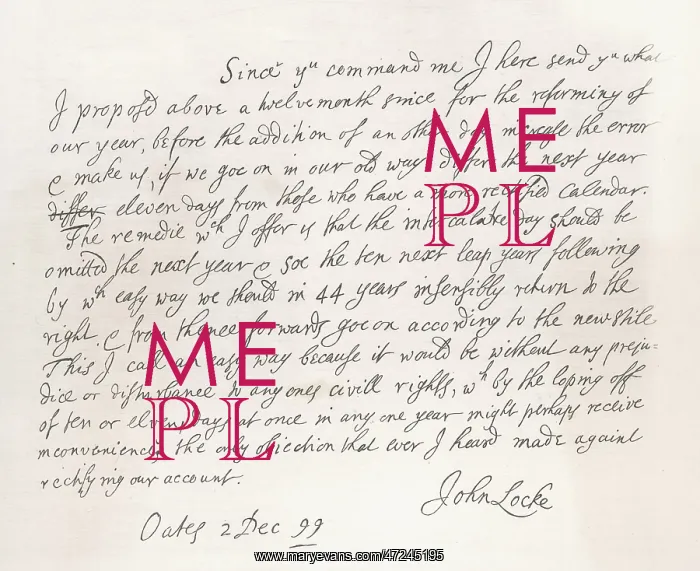 Since yu command me I here send yu what
I propos'd above a twelvemonth since for the reforming of
our year, before the addition of an other day increase the error
& make us, if we goe on in our old way differ the next year
differ eleven days from those who have a more rectified Calendar.
The remedie wch I offer is that the intercalare day should be
omitted the next year & soe the ten next leap years following
by wch easy way we should in 44 years insensibly return to the
right. & from thence forwards goe on according to the new stile
This I call an easy way because it would be without any preju=
dice or disturbance to any ones civill rights, wch by the loping off
of ten or eleven days at once in any one year might perhaps receive
inconvenience, the only objection that ever I heard made against
rectifying our account.
John Locke
Oates 2 Dec 99
ME
PL
ME
PL
www.maryevans.com/47245195